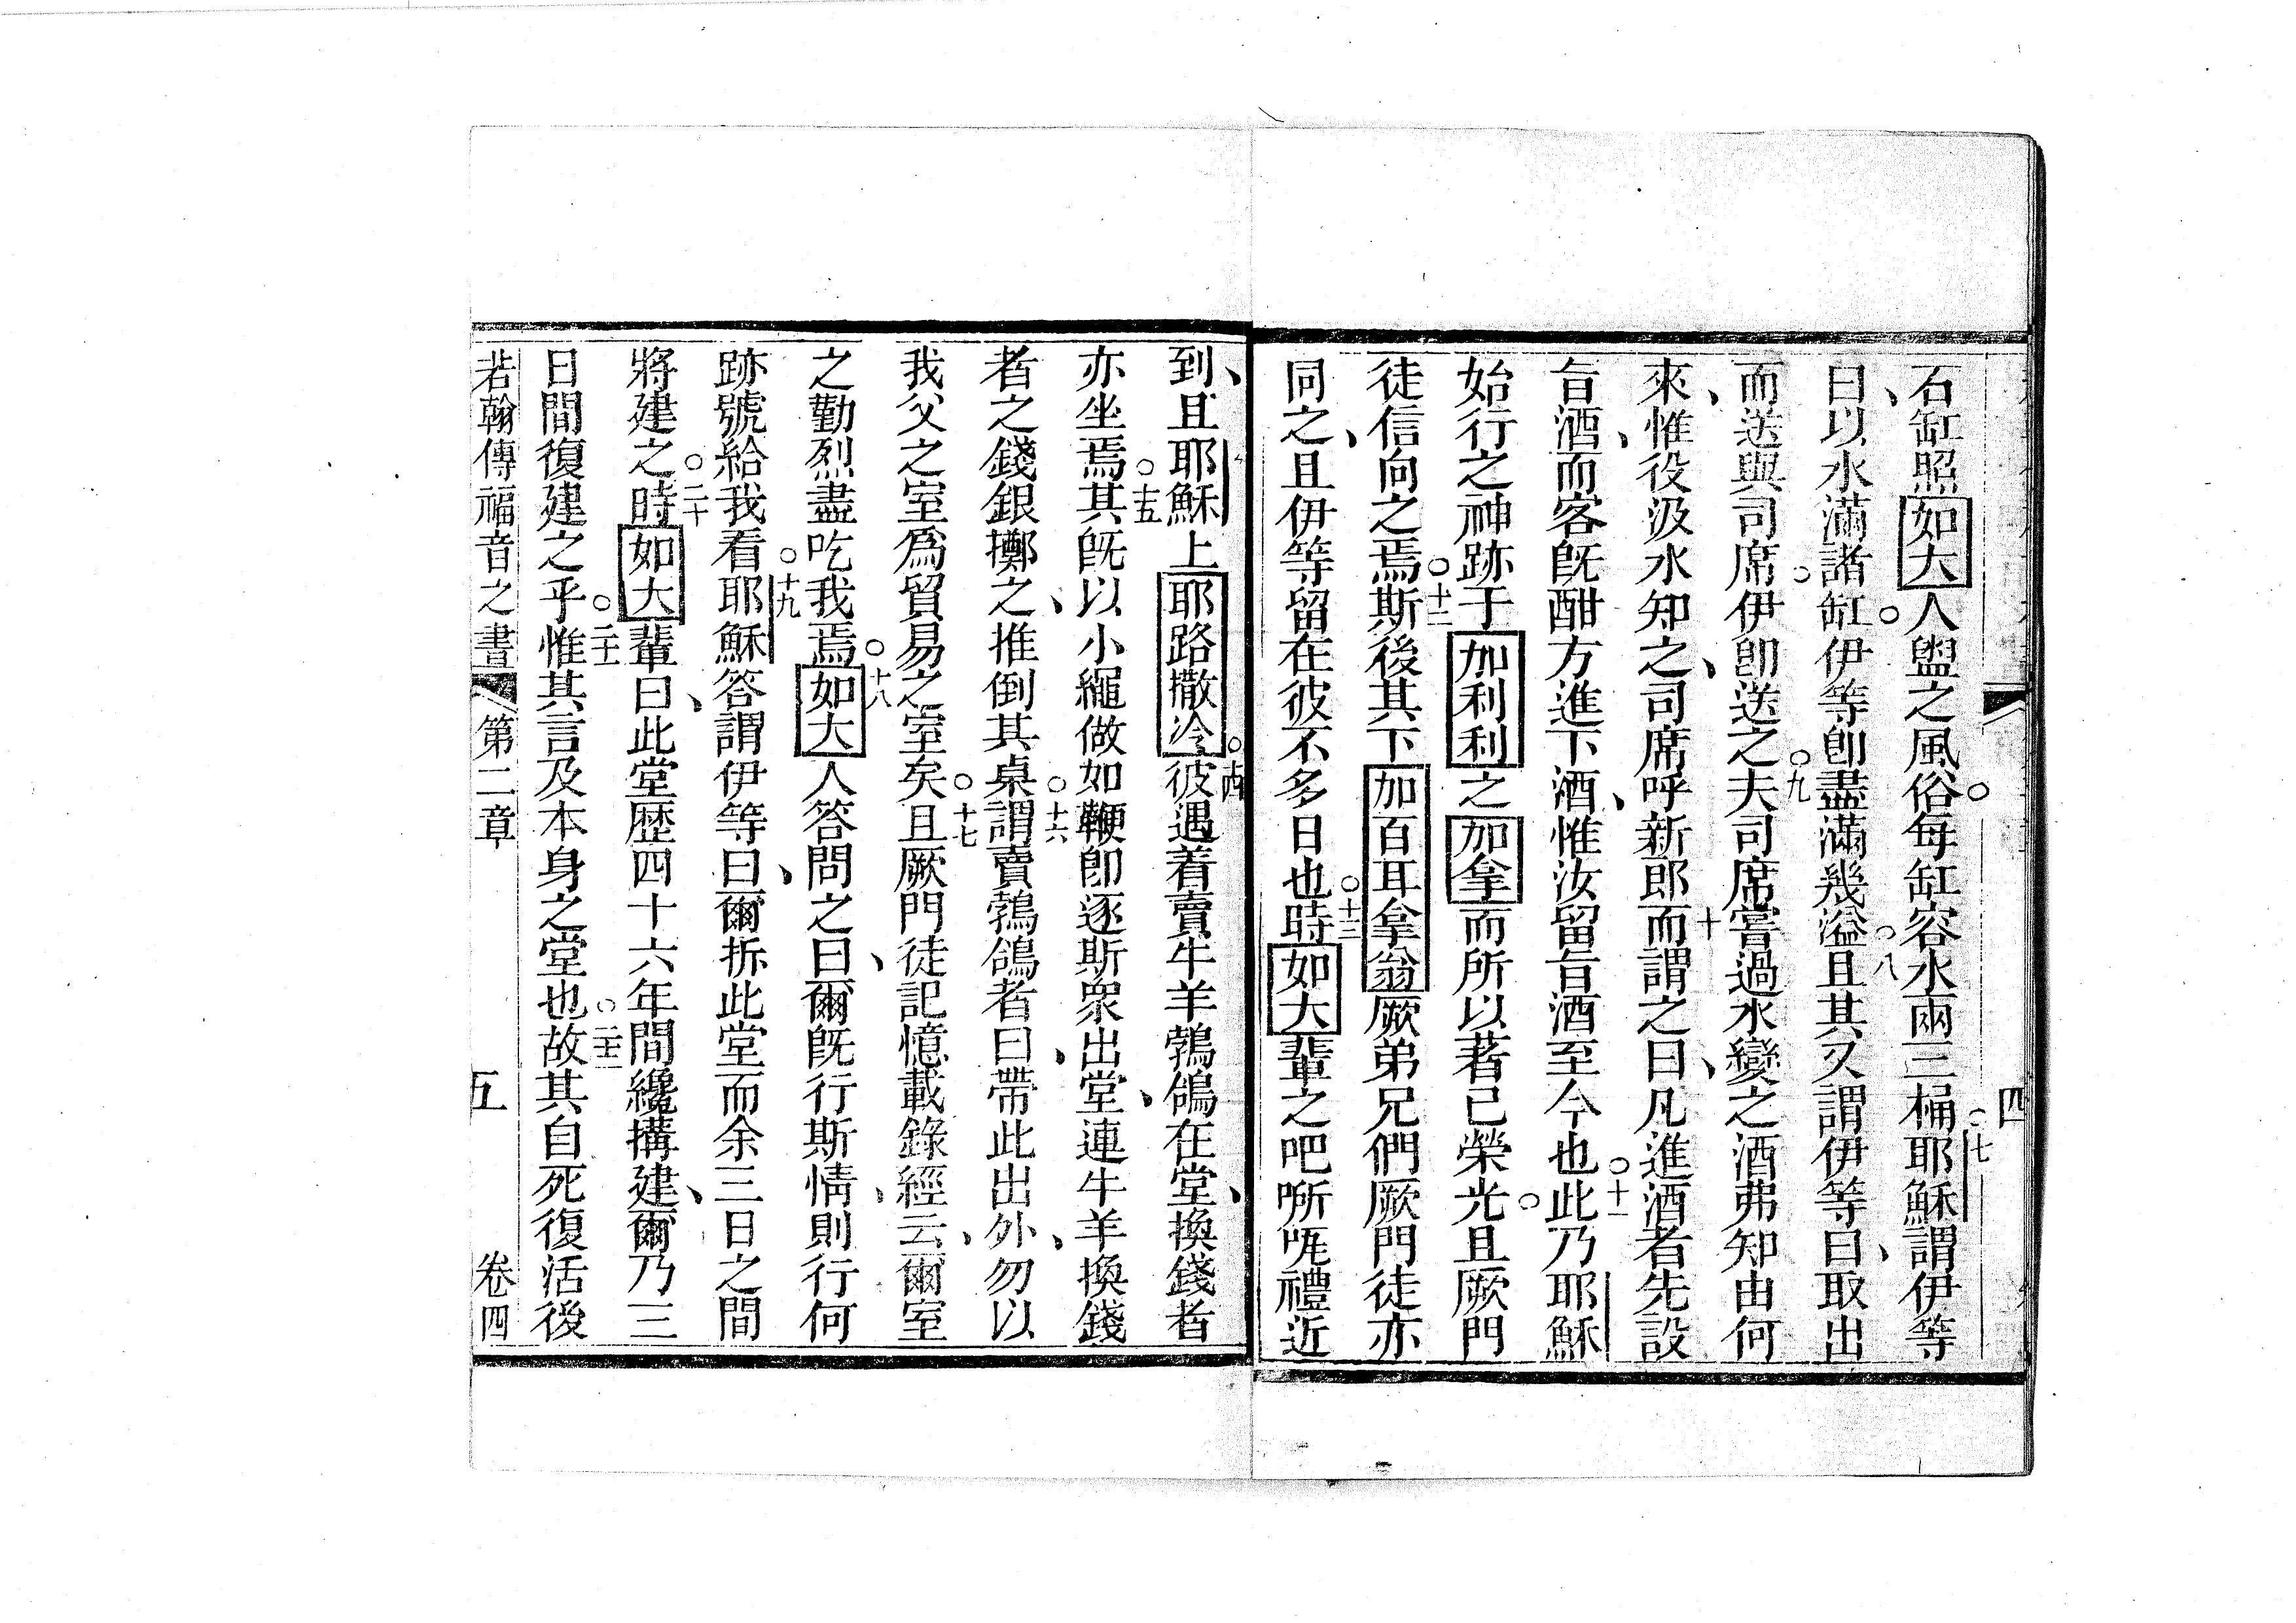 四
石缸照如大人盥之風俗每缸容水兩三桶耶穌謂伊等
七
曰以水滿諸缸伊等卽盡滿幾溢且其又謂伊等曰取出
八
而送與司席伊卽送之夫司席嘗過水變之酒弗知由何
九
來惟役汲水知之司席呼新郎而謂之曰凡進酒者先設
十
旨酒而客旣酣方進下酒惟汝留旨酒至今也此乃耶穌
十一
始行之神跡于加利利之加拿而所以著己榮光且厥門
徒信向之焉斯後其下加百耳拿翁厥弟兄們厥門徒亦
十二
同之且伊等留在彼不多日也時如大輩之吧㗭咓禮近
十三
到且耶穌上耶路撒冷彼遇着賣牛羊鵓鴿在堂換錢者
十四
亦坐焉其旣以小繩做如鞭卽逐斯衆出堂連牛羊換錢
十五
者之錢銀擲之推倒其桌謂賣鵓鴿者曰帶此出外勿以
十六
我父之室爲貿易之室矣且厥門徒記憶載錄經云爾室
十七
之勤烈盡吃我焉如大人答問之曰爾旣行斯情則行何
十八
跡號給我看耶穌答謂伊等曰爾拆此堂而余三日之間
十九
將建之時如大輩曰此堂歷四十六年間纔搆建爾乃三
二十
日間復建之乎惟其言及本身之堂也故其自死復活後
二十一
二十二
若翰傳福音之書 第二章 五 卷四